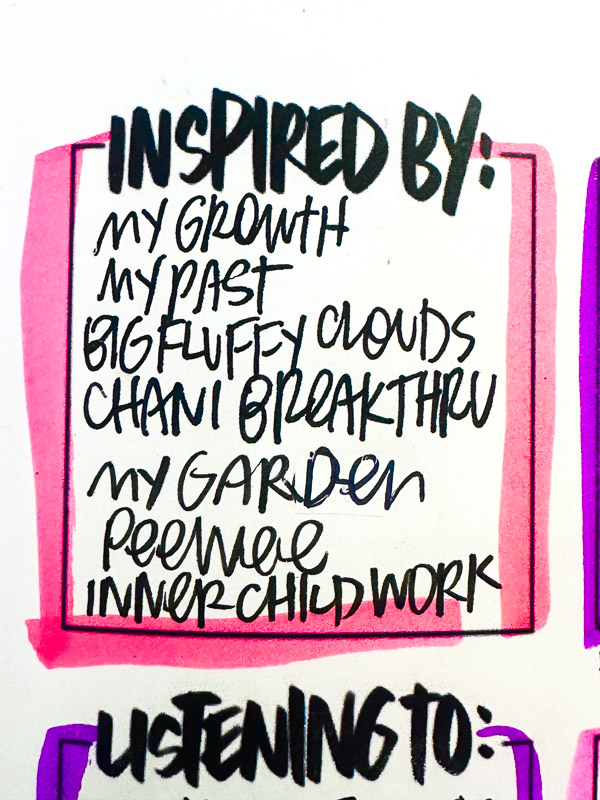 INSPIRED BY:
MY GROWTH
MY PAST
BIG FLUFFY CLOUDS
CHANI BREAKTHRU
MY GARDEN
PEEWEE
INNER CHILD WORK
LISTENING TO: